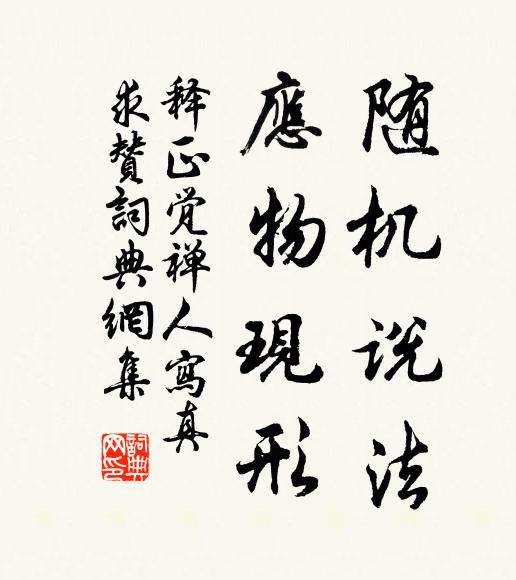 随机说法
應物現形
释正觉禅人寫真
求赞詞典網集
詞典网印